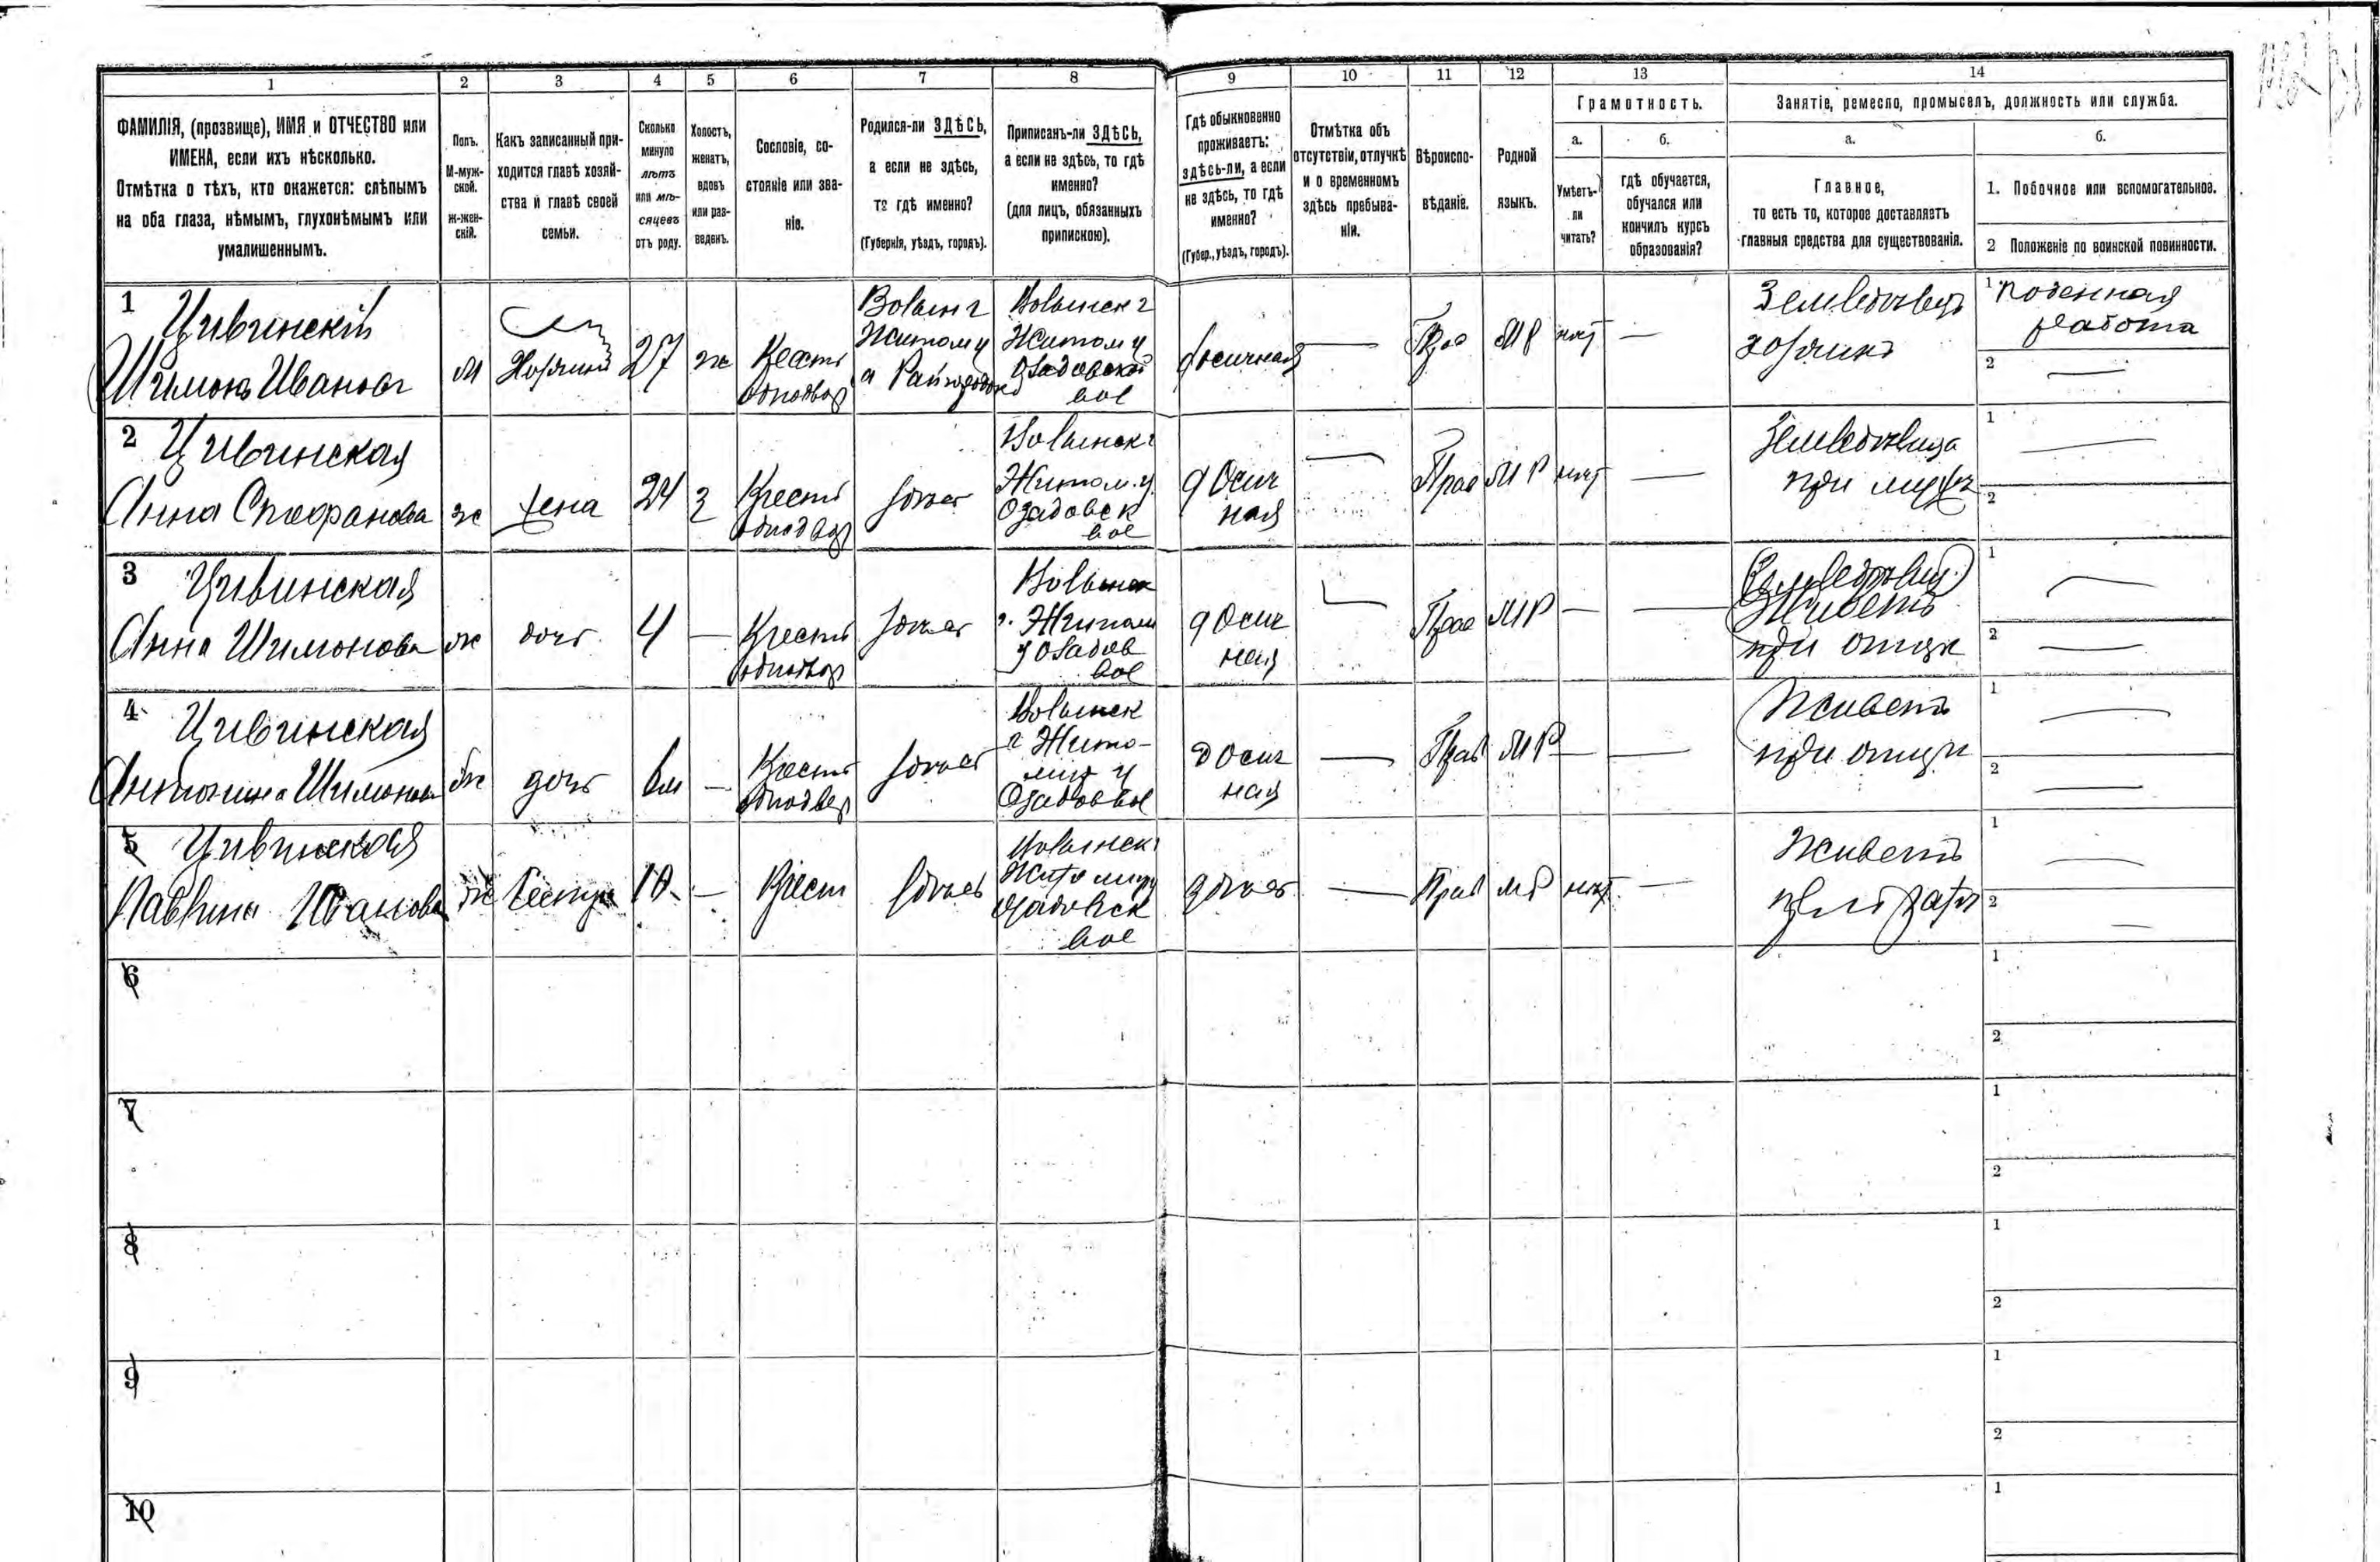 1 2 3 4 5 6 7 8 9 10 11 12 13 14
ФАМИЛІЯ, (прозвище), ИМЯ и ОТЧЕСТВО или
ИМЕНА, если ихъ нѣсколько.
Отмѣтка о тѣхъ, кто окажется: слѣпымъ
на оба глаза, нѣмымъ, глухонѣмымъ или
умалишеннымъ.
Полъ.
М-муж-
ской.
ж-жен-
скій.
Какъ записанный при-
ходится главѣ хозяй-
ства и главѣ своей
семьи.
Сколько
минуло
лѣтъ
или мѣ-
сяцевъ
отъ роду.
Холостъ,
женатъ,
вдовъ
или раз-
веденъ.
Сословіе, со-
стояніе или зва-
ніе.
Родился-ли ЗДѢСЬ,
а если не здѣсь,
то гдѣ именно?
(Губернія, уѣздъ, городъ).
Приписанъ-ли ЗДѢСЬ,
а если не здѣсь, то гдѣ
именно?
(для лицъ, обязанныхъ
припискою).
Гдѣ обыкновенно
проживаетъ:
здѣсь-ли, а если
не здѣсь, то гдѣ
именно?
(Губер., уѣздъ, городъ).
Отмѣтка объ
отсутствіи, отлучкѣ
и о временномъ
здѣсь пребыва-
ніи.
Вѣроиспо-
вѣданіе.
Родной
языкъ.
Грамотность.
а.
Умѣетъ-
ли
читать?
б.
гдѣ обучается,
обучался или
кончилъ курсъ
образованія?
Занятіе, ремесло, промыселъ, должность или служба.
а.
Главное,
то есть то, которое доставляетъ
главныя средства для существованія.
б.
1. Побочное или вспомогательное.
2 Положеніе по воинской повинности.
1 Цивинскій
Шимонъ Ивановъ
м
Хозяинъ
27
ж
Крестъ
однодвор
Волын г
Житом у
Волынск г
Житом у
Озадовской
вол
Осичная
—
Прав
МР
нѣт
—
Земледѣлецъ
хозяинъ
1 Поденная
работа
2 —
2 Цивинская
Анна Стефанова
ж
жена
24
з
Крестъ
однодвор
здѣсь
Волынск г
Житом. у.
Озадовск
вол
д Осич
ная
—
Прав
МР
нѣт
—
Земледѣлица
при мужѣ
1 —
2 —
3 Цивинская
Анна Шимонова
ж
дочь
4
—
Крестъ
однодвор
здѣсь
Волынск
г. Житом
у Озадов
вол
д Осич
ная
—
Прав
МР
—
—
Живетъ
при отцѣ
1 —
2 —
4 Цивинская
Антонина Шимонова
ж
дочь
6м
—
Крестъ
однодвор
здѣсь
Волынск
г Жито-
мир у
Озадов вол
д Осич
ная
—
Прав
МР
—
—
Живетъ
при отцѣ
1 —
2 —
5 Цивинская
Павлина Иванова
ж
Сестра
10
—
Крест
здѣсь
Волынск г
Житомир у
Озадовск
вол
здѣсь
—
Прав
МР
нѣт
—
Живетъ
1 —
2 —
6
1
2
7
1
2
8
1
2
9
1
2
10
1